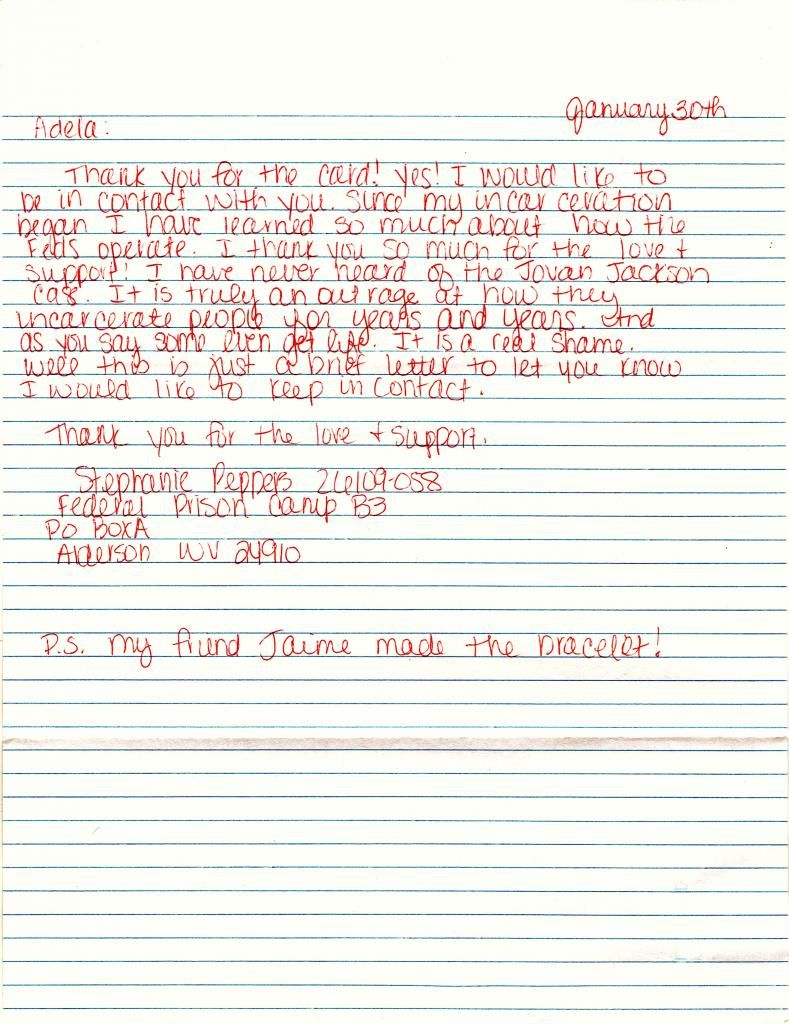 January 30th
Adela:
Thank you for the card! Yes! I would like to
be in contact with you. Since my incarceration
began I have learned so much about how the
Feds operate. I thank you so much for the love +
support! I have never heard of the Jovan Jackson
case. It is truly an outrage at how they
incarcerate people for years and years. And
as you say some even get life. It is a real shame.
Well this is just a brief letter to let you know
I would like to keep in contact.
Thank you for the love + support.
Stephanie Peppers 26109-058
Federal Prison Camp B3
PO Box A
Alderson WV 24910
P.S. My friend Jaime made the bracelet!